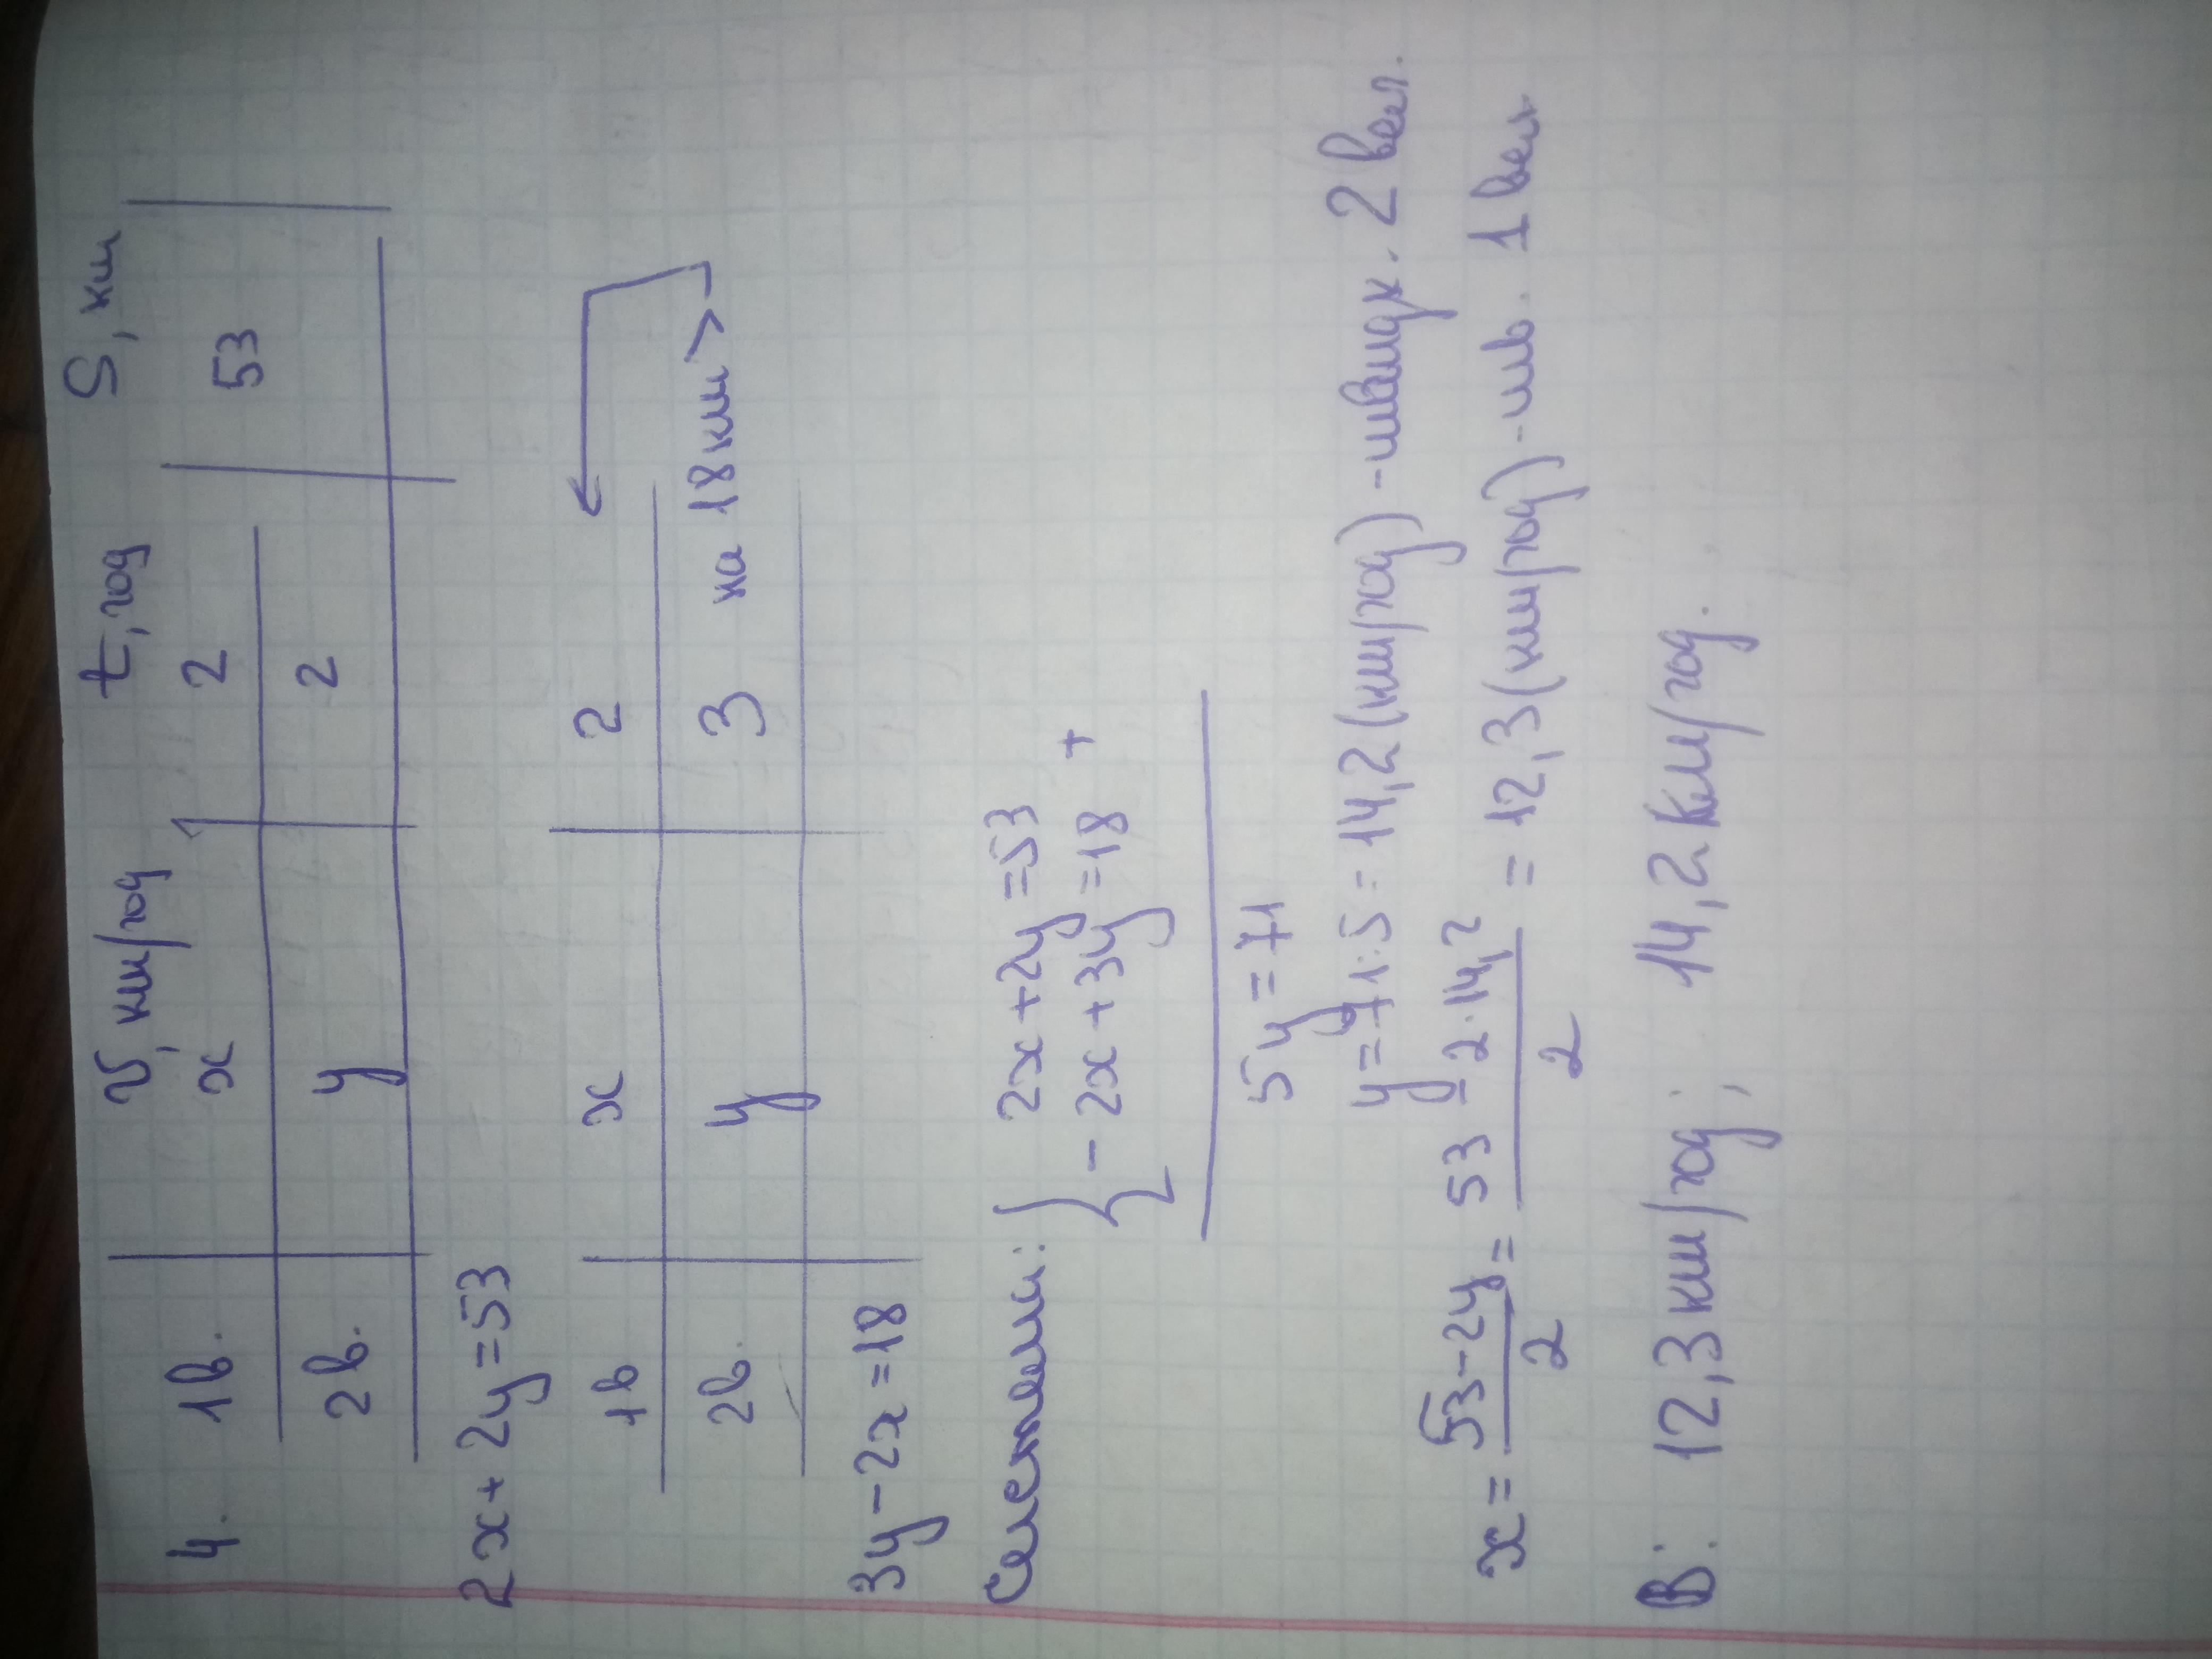 4. v, км/год t, год S, км
1в. x 2 53
2в. y 2
2x + 2y = 53
1в x 2
2в. y 3 на 18км >
3y - 2x = 18
Система: { 2x + 2y = 53
- 2x + 3y = 18 +
5y = 71
y = 71 : 5 = 14,2 (км/год) - швидк. 2 вел.
x = \frac{53 - 2y}{2} = \frac{53 - 2 · 14,2}{2} = 12,3 (км/год) - шв. 1 вел
В: 12,3 км/год; 14,2 км/год.